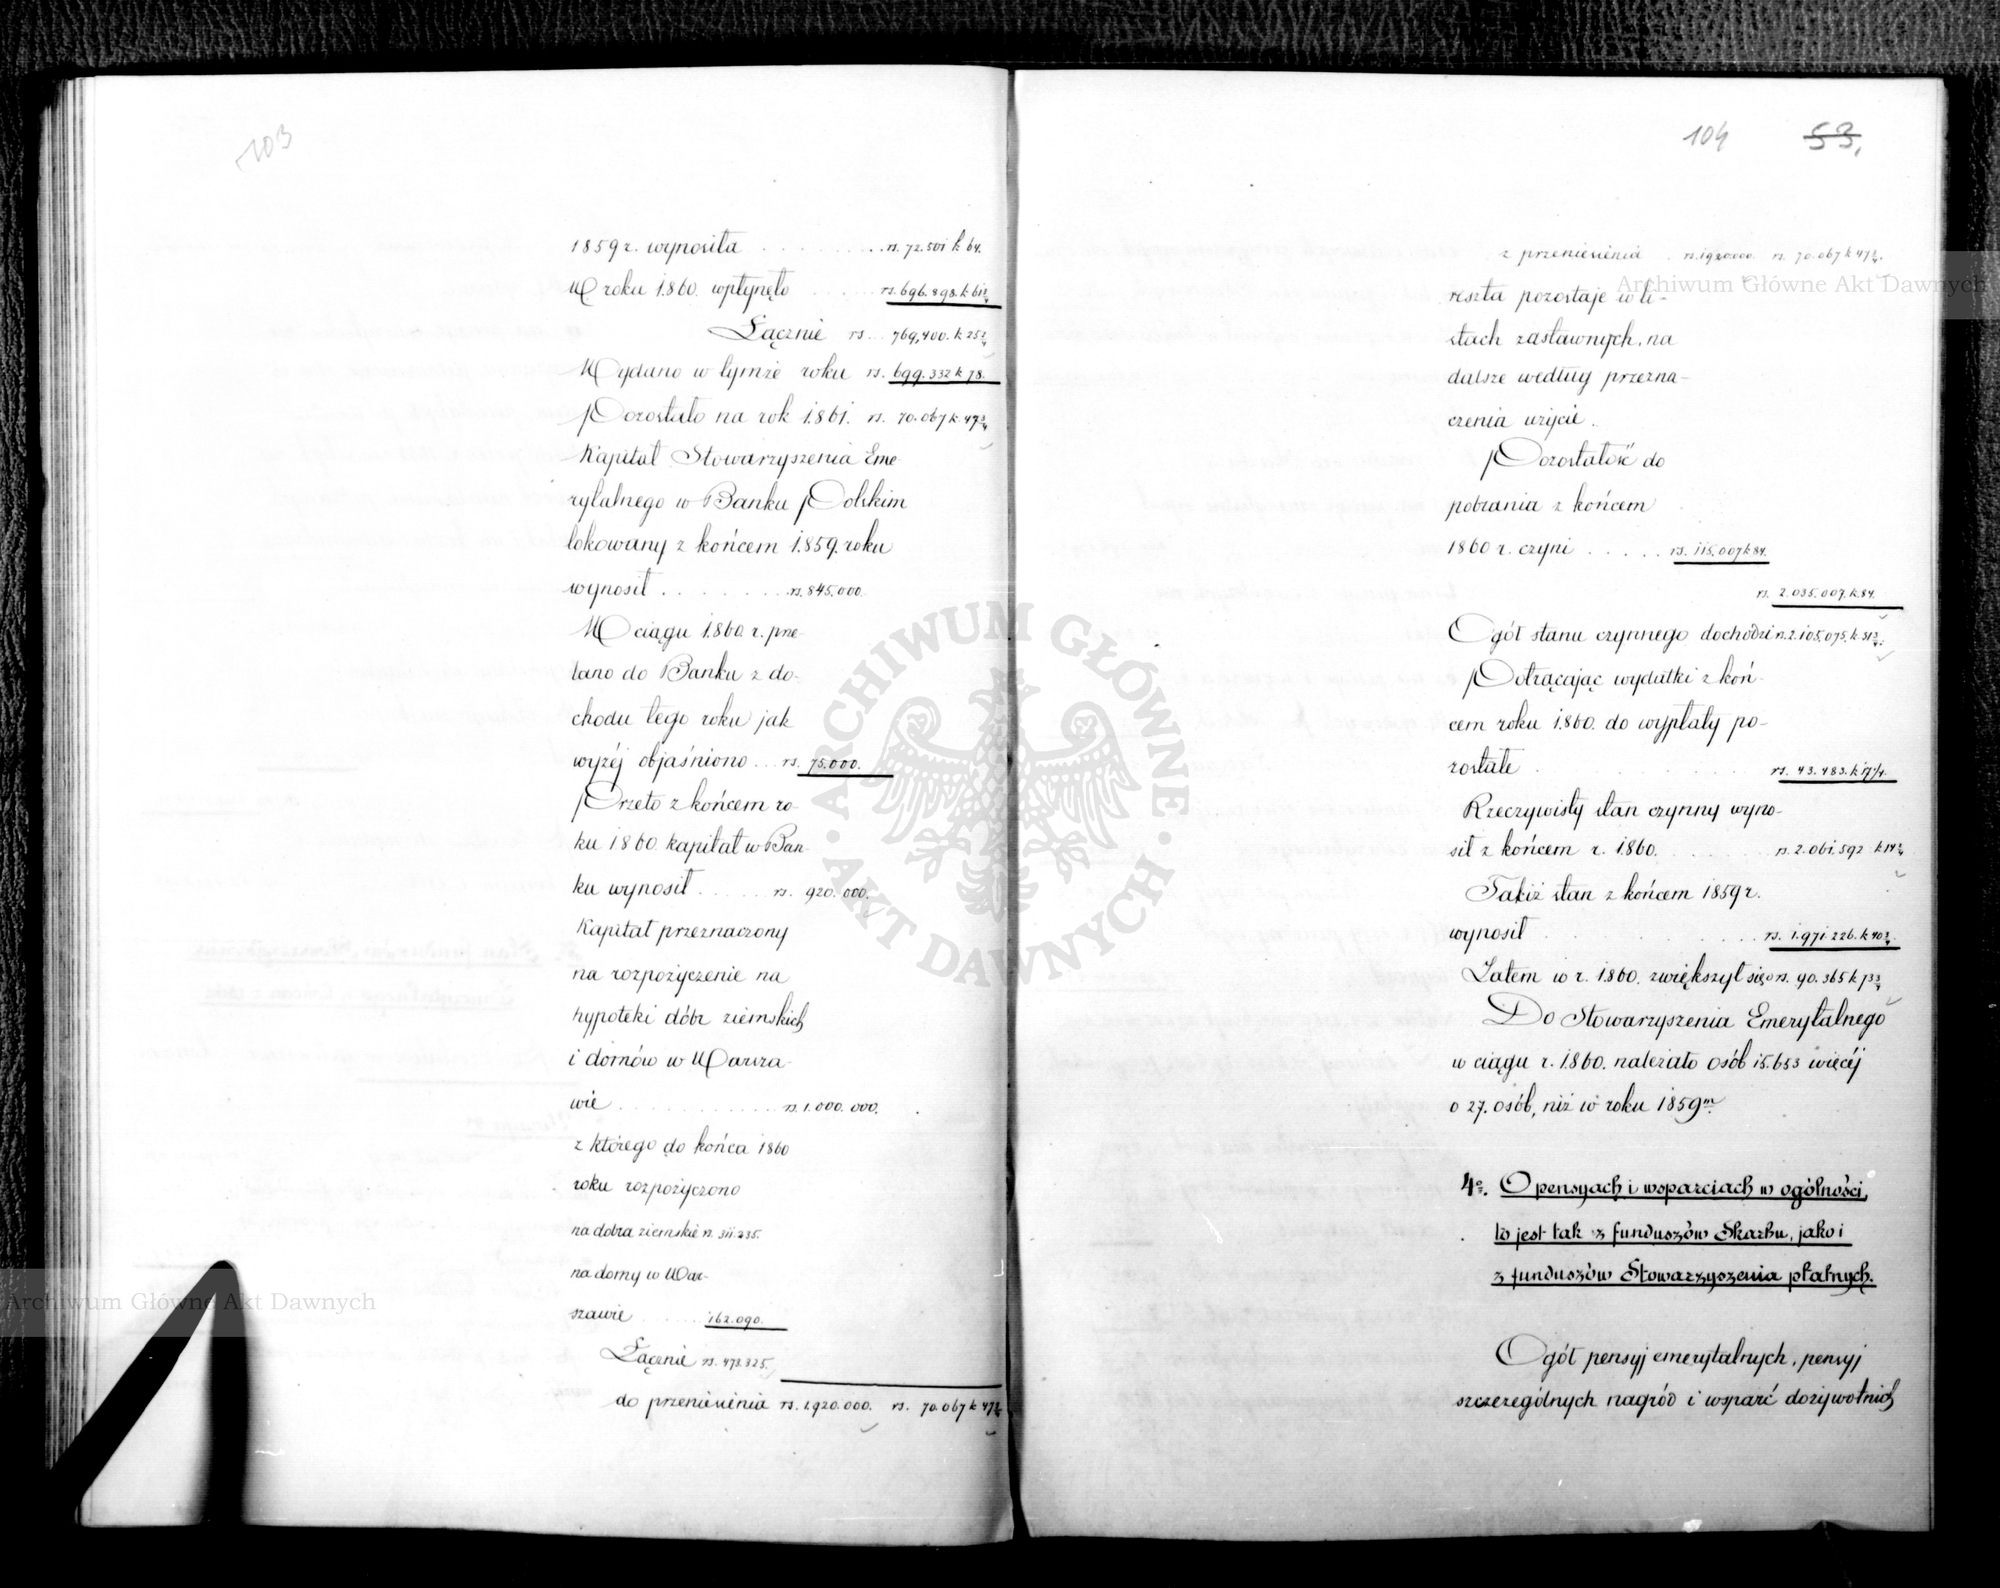 103
1859 r. wynosiła . . . . . . . . . rs. 72.501 k 64.
W roku 1860. wpłynęło . . . . . rs. 696.898. k 61¾
Łącznie rs... 769,400. k 25¾
Wydano w tymże roku rs. 699.332 k 78.
Pozostało na rok 1861. rs. 70.067 k. 47¾
Kapitał Stowarzyszenia Eme-
rytalnego w Banku Polskim
lokowany z końcem 1859. roku
wynosił . . . . . . . . rs. 845.000.
W ciągu 1860. r. prze-
lano do Banku z do-
chodu tego roku jak
wyżéj objaśniono ... rs. 75.000.
Przeto z końcem ro-
ku 1860. kapitał w Ban-
ku wynosił . . . . . rs. 920.000.
Kapitał przeznaczony
na rozpożyczenie na
hypoteki dóbr ziemskich
i domów w Warsza-
wie . . . . . . . . . . . rs. 1.000.000.
z którego do końca 1860
roku rozpożyczono
na dobra ziemskie rs. 311.235.
na domy w War-
szawie . . . . . . 162.090.
Łącznie rs. 473.325.
do przeniesienia rs. 1.920.000. rs. 70.067 k 47¾
104 53.
z przeniesienia . rs. 1920.000. rs. 70.067 k 47¾.
reszta pozostaje w li-
stach zastawnych, na
dalsze według przezna-
czenia użycie.
Pozostałość do
pobrania z końcem
1860 r. czyni . . . . . rs. 115.007 k 84.
rs. 2.035.007. k. 84.
Ogół stanu czynnego dochodzi rs. 2.105.075. k. 31¾.
Potrącając wydatki z koń-
cem roku 1860. do wypłaty po-
zostałe . . . . . . . . . . . rs. 43.483. k 17¼.
Rzeczywisty stan czynny wyno-
sił z końcem r. 1860. . . . . . . . rs. 2.061.592 k 14¾
Takiż stan z końcem 1859 r.
wynosił . . . . . . . . . . . rs. 1.971.226. k 40¾.
Zatem w r. 1860. zwiększył się o rs. 90.365 k 73¾
Do Stowarzyszenia Emerytalnego
w ciągu r. 1860. należało osób 15.653 więcéj
o 27. osób, niż w roku 1859ᵐ
4º. O pensyach i wsparciach w ogólności,
to jest tak z funduszów Skarbu, jako i
z funduszów Stowarzyszenia płatnych.
Ogół pensyj emerytalnych, pensyj
szczególnych nagród i wsparć dożywotnich
Archiwum Główne Akt Dawnych
Archiwum Główne Akt Dawnych
ARCHIWUM GŁÓWNE
AKT DAWNYCH